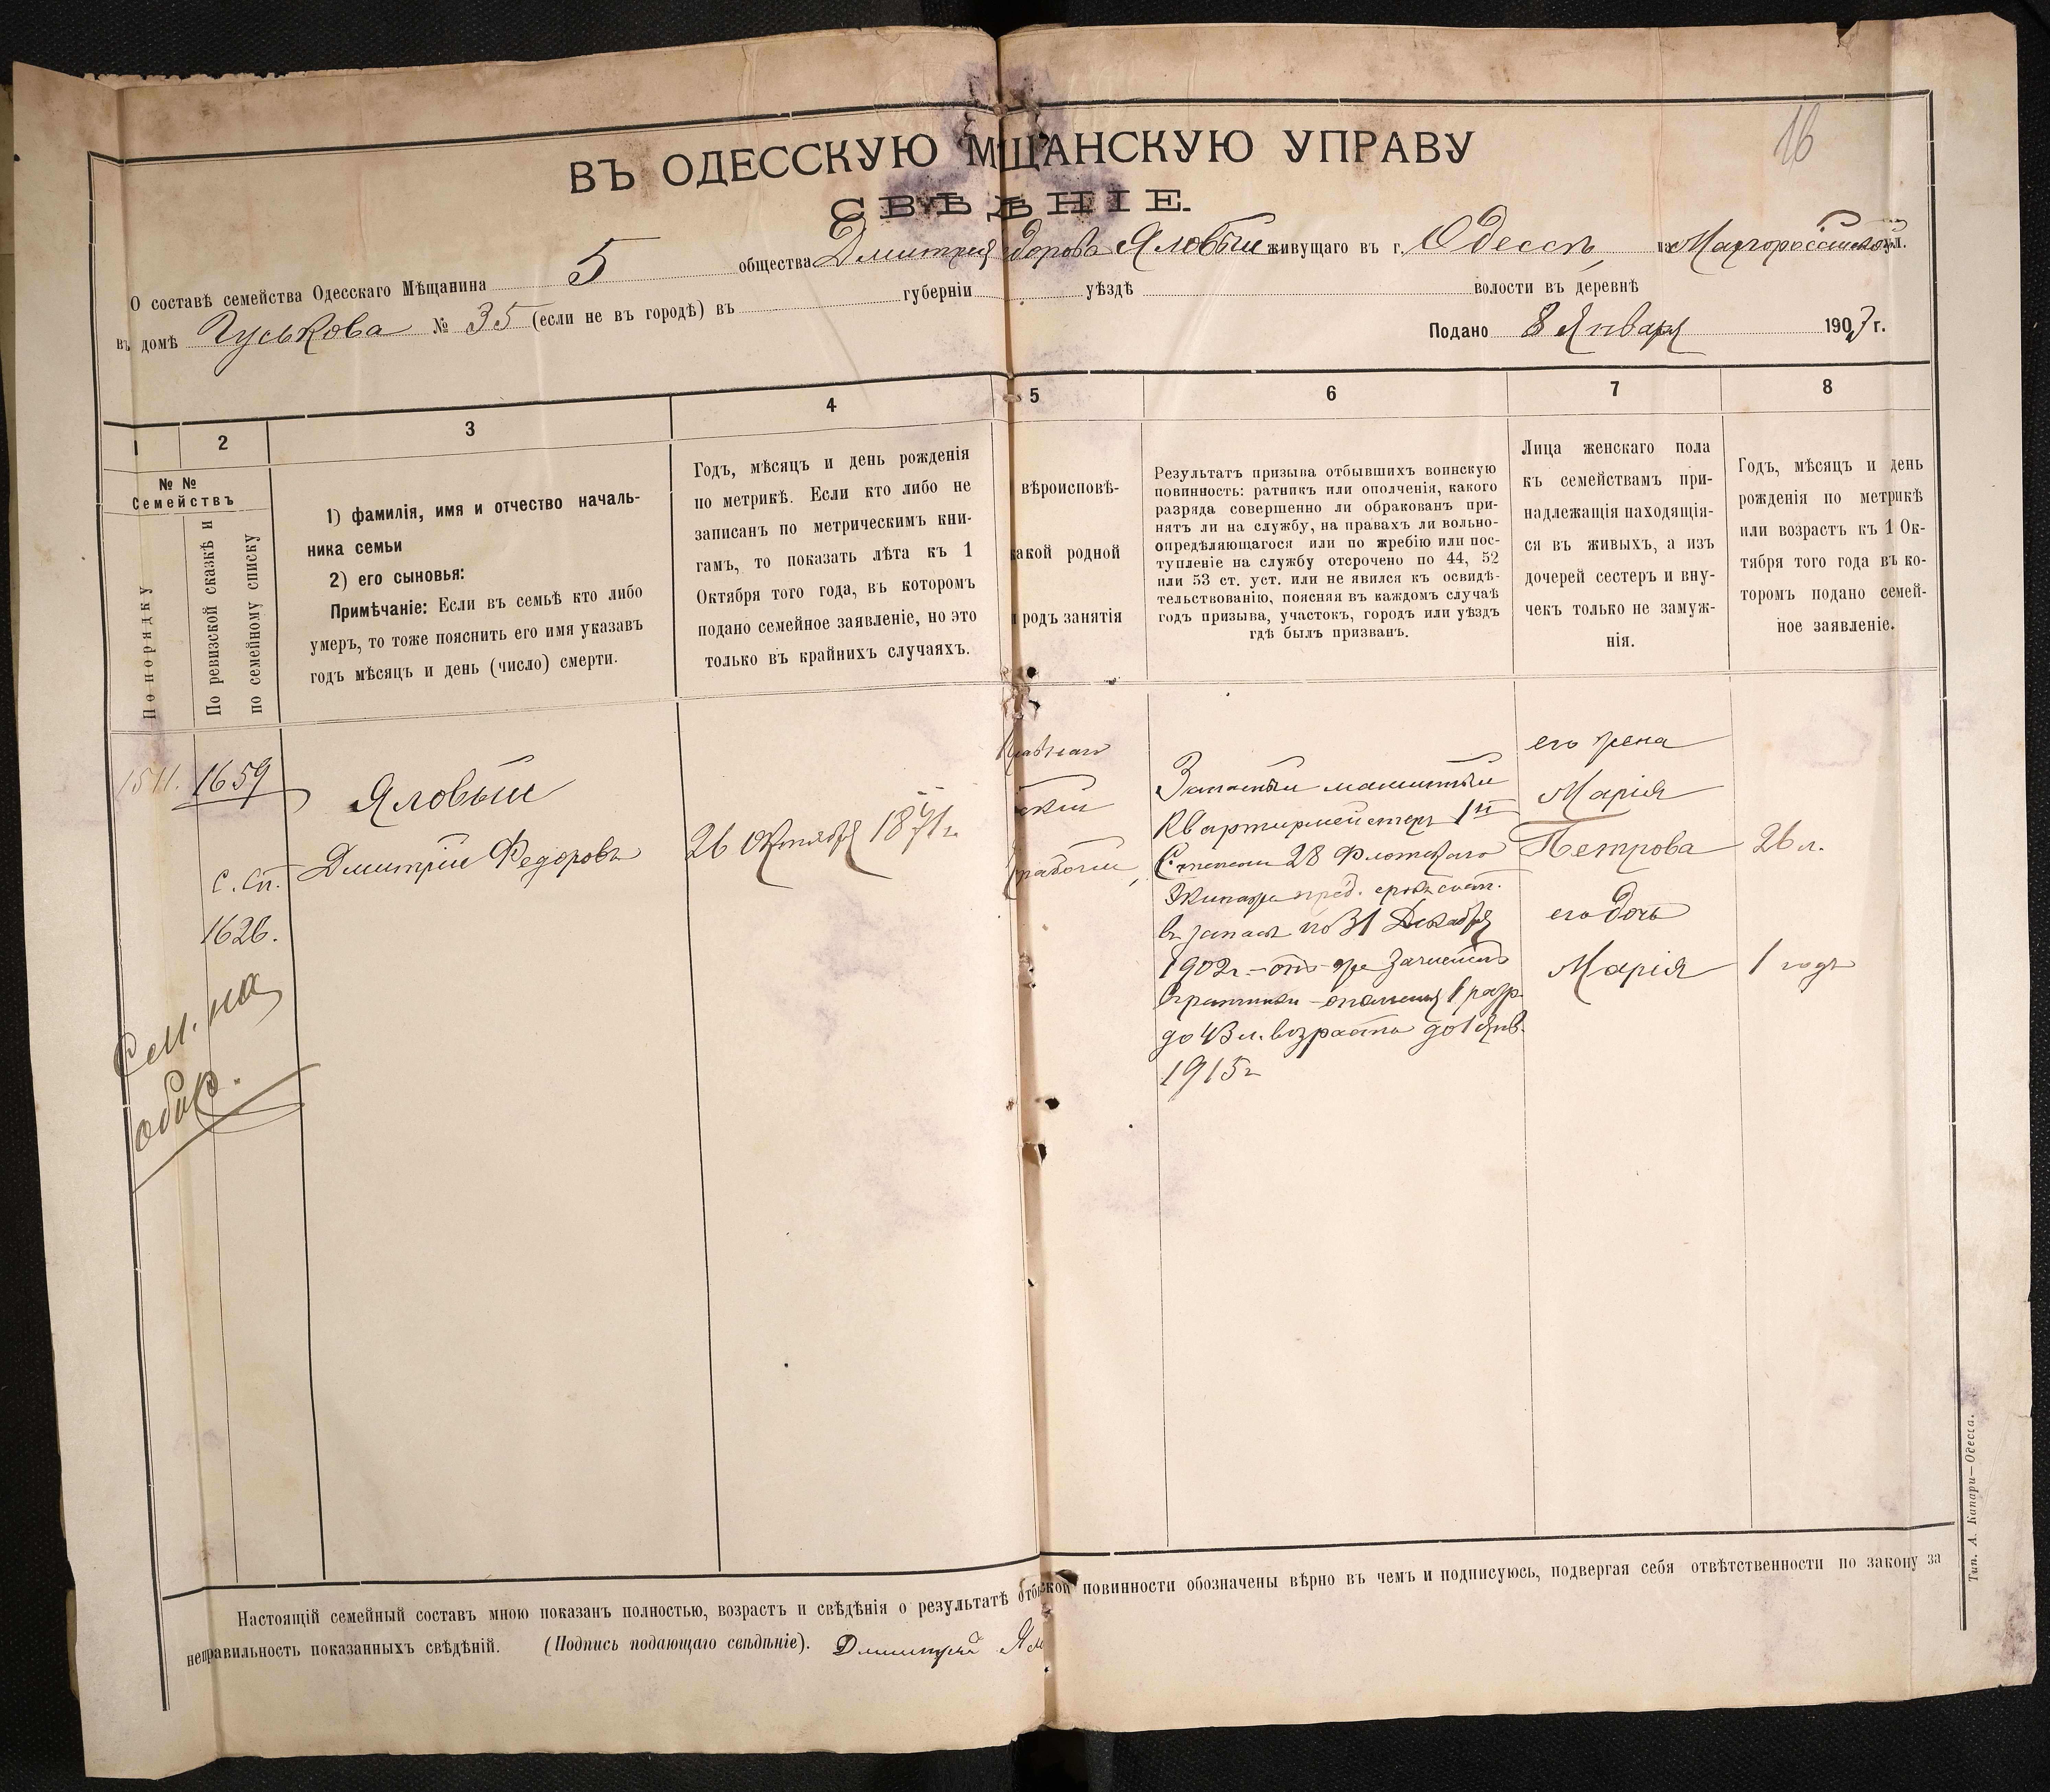 16
ВЪ ОДЕССКУЮ МЩАНСКУЮ УПРАВУ
СВѢДѢНІЕ.
О составѣ семейства Одесскаго Мѣщанина 5 общества Дмитрія дорова Яловый живущаго въ г. Одессѣ на Малороссійской ул.
въ домѣ Гуськова № 35 (если не въ городѣ) въ губерніи уѣздѣ волости въ деревнѣ
Подано 8 Января 1903 г.
1 2 3 4 5 6 7 8
№ №
Семействъ
По порядку
По ревизской сказкѣ и
по семейному списку
1) фамилія, имя и отчество началь-
ника семьи
2) его сыновья:
Примѣчаніе: Если въ семьѣ кто либо
умеръ, то тоже пояснить его имя указавъ
годъ мѣсяцъ и день (число) смерти.
Годъ, мѣсяцъ и день рожденія
по метрикѣ. Если кто либо не
записанъ по метрическимъ кни-
гамъ, то показать лѣта къ 1
Октября того года, въ которомъ
подано семейное заявленіе, но это
только въ крайнихъ случаяхъ.
вѣроисповѣ-
акой родной
родъ занятія
Результатъ призыва отбывшихъ воинскую
повинность: ратникъ или ополченія, какого
разряда совершенно ли обракованъ при-
нятъ ли на службу, на правахъ ли вольно-
опредѣляющагося или по жребію или пос-
тупленіе на службу отсрочено по 44, 52
или 53 ст. уст. или не явился къ освидѣ-
тельствованію, поясняя въ каждомъ случаѣ
годъ призыва, участокъ, городъ или уѣздъ
гдѣ былъ призванъ.
Лица женскаго пола
къ семействамъ при-
надлежащія находящія-
ся въ живыхъ, а изъ
дочерей сестеръ и вну-
чекъ только не замуж-
нія.
Годъ, мѣсяцъ и день
рожденія по метрикѣ
или возрастъ къ 1 Ок-
тября того года въ ко-
торомъ подано семей-
ное заявленіе.
1511. 1659
с. сп.
1626.
Сем. на
обор.
Яловый
Дмитрій Федоровъ
26 Октября 1871 г.
ской
рабочій
Запасный машинный
Квартирмейстеръ 1й
Степени 28 Флотскаго
Экипажа сост.
въ запасѣ по 31 Декабря
1902 г. зачисленъ
ополченія 1 разр.
до 43 л. возраста до 1 Янв.
1915 г
его жена
Марія
Петрова 26 л.
его дочь
Марія 1 годъ
Настоящій семейный составъ мною показанъ полностью, возрастъ и свѣдѣнія о результатѣ отб ской повинности обозначены вѣрно въ чемъ и подписуюсь, подвергая себя отвѣтственности по закону за
неправильность показанныхъ свѣдѣній. (Подпись подающаго свѣдѣніе). Дмитрій Ял
Тип. А. Капари—Одесса.